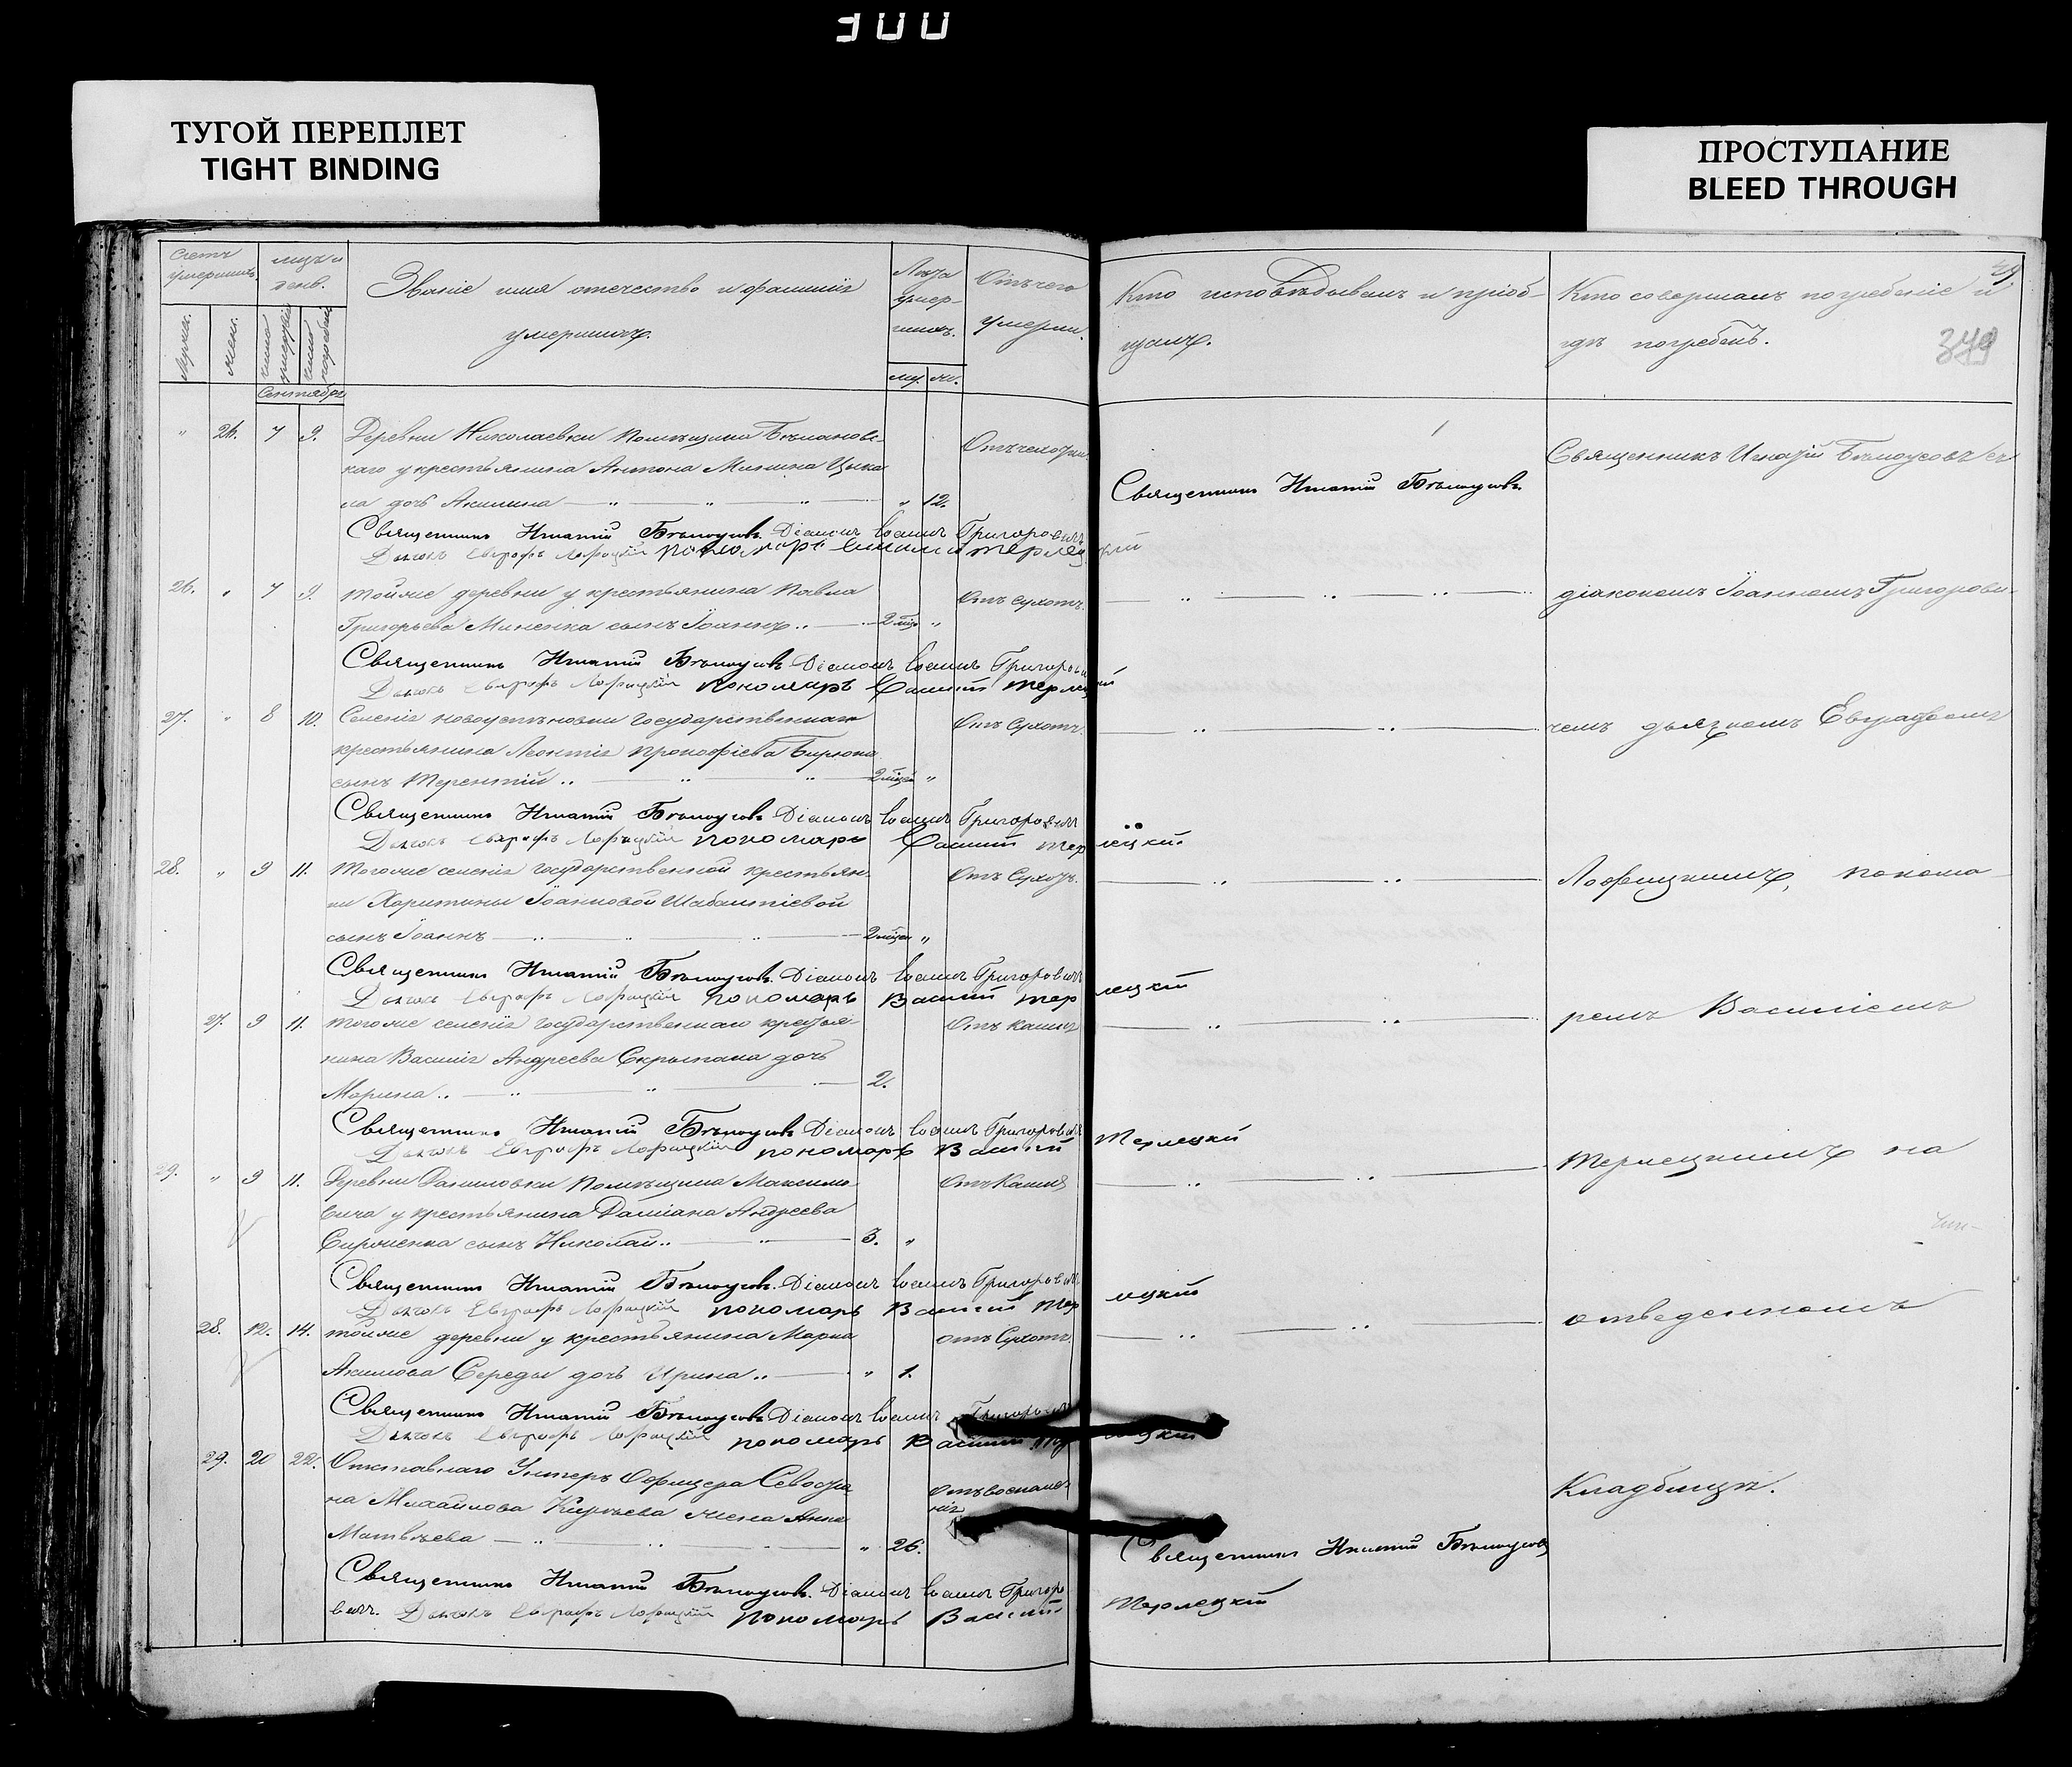 300
ТУГОЙ ПЕРЕПЛЕТ
TIGHT BINDING
ПРОСТУПАНИЕ
BLEED THROUGH
Счетъ умершихъ
Мужск.
женс.
Званіе имя отечество и фамилія
умершихъ.
Лѣта умер-
шихъ.
му. же.
Отъ чего
умерли.
Кто исповѣдывалъ и пріоб-
щалъ.
Кто совершалъ погребеніе и
гдѣ погребенъ.
349
Сентября
26. 7 9. Деревни Николаевки помѣщика
каго у крестьянина Антона Минина
дочь Акилина 12.
Священникъ Игнатій Бѣлоусовъ
Священникъ Игнатій Бѣлоусовъ
Священникъ Игнатій Бѣлоусовъ. Діаконъ Іоаннъ Григоровичъ
Дьячокъ Евграфъ Лофицкій пономарь Василій Терлецкій
26. 7 9. тойже деревни у крестьянина Павла Отъ сухот.
Григорьева Миненка сынъ Іоаннъ 2 мѣс.
діакономъ Іоанномъ Григорови-
Священникъ Игнатій Бѣлоусовъ Діаконъ Іоаннъ Григоровичъ
Дьячокъ Евграфъ Лофицкій пономарь Василій Терлецкій
27. 8 10. Селенія государственнаго Отъ Сухот.
крестьянина Леонтія Прокофіева Бирюка
сынъ Терентій 2 мѣсяц.
чемъ дьячкомъ Евграфомъ
Священникъ Игнатій Бѣлоусовъ Діаконъ Іоаннъ Григоровичъ
Дьячокъ Евграфъ Лофицкій пономарь Василій Терлецкій
28. 9 11. Тогоже селенія государственной крестьян-
ки Харитины Іоанновой
сынъ Іоаннъ 2 мѣсяц.
Лофицкимъ, понома-
Священникъ Игнатій Бѣлоусовъ. Діаконъ Іоаннъ Григоровичъ
Дьячокъ Евграфъ Лофицкій пономарь Василій Терлецкій
27. 9 11. тогоже селенія государственнаго крестья- Отъ кашля
нина Василія Андреева дочь
Марина 2.
ремъ Василіемъ
Священникъ Игнатій Бѣлоусовъ Діаконъ Іоаннъ Григоровичъ
Дьячокъ Евграфъ Лофицкій пономарь Василій Терлецкій
29. 9 11. Деревни Даниловки помѣщика Максимо- Отъ Кашля
вича у крестьянина Даміана Андреева
сынъ Николай 3.
Терлецкимъ на
Священникъ Игнатій Бѣлоусовъ. Діаконъ Іоаннъ Григоровичъ
Дьячокъ Евграфъ Лофицкій пономарь Василій Терлецкій
28. 12. 14. тойже деревни у крестьянина Марка отъ Сухот.
Акимова Середы дочь Ирина 1.
отведенномъ
Священникъ Игнатій Бѣлоусовъ Діаконъ Іоаннъ Григоровичъ
Дьячокъ Евграфъ Лофицкій пономарь Василій
29. 20 22. Отставнаго Унтеръ Офицера Отъ воспале-
нія
на Михайлова жена Анна
Матвѣева 26.
Кладбищѣ.
Священникъ Игнатій Бѣлоусовъ
Священникъ Игнатій Бѣлоусовъ. Діаконъ Іоаннъ Григоро
вичъ. Дьячокъ Евграфъ Лофицкій пономарь Василій Терлецкій